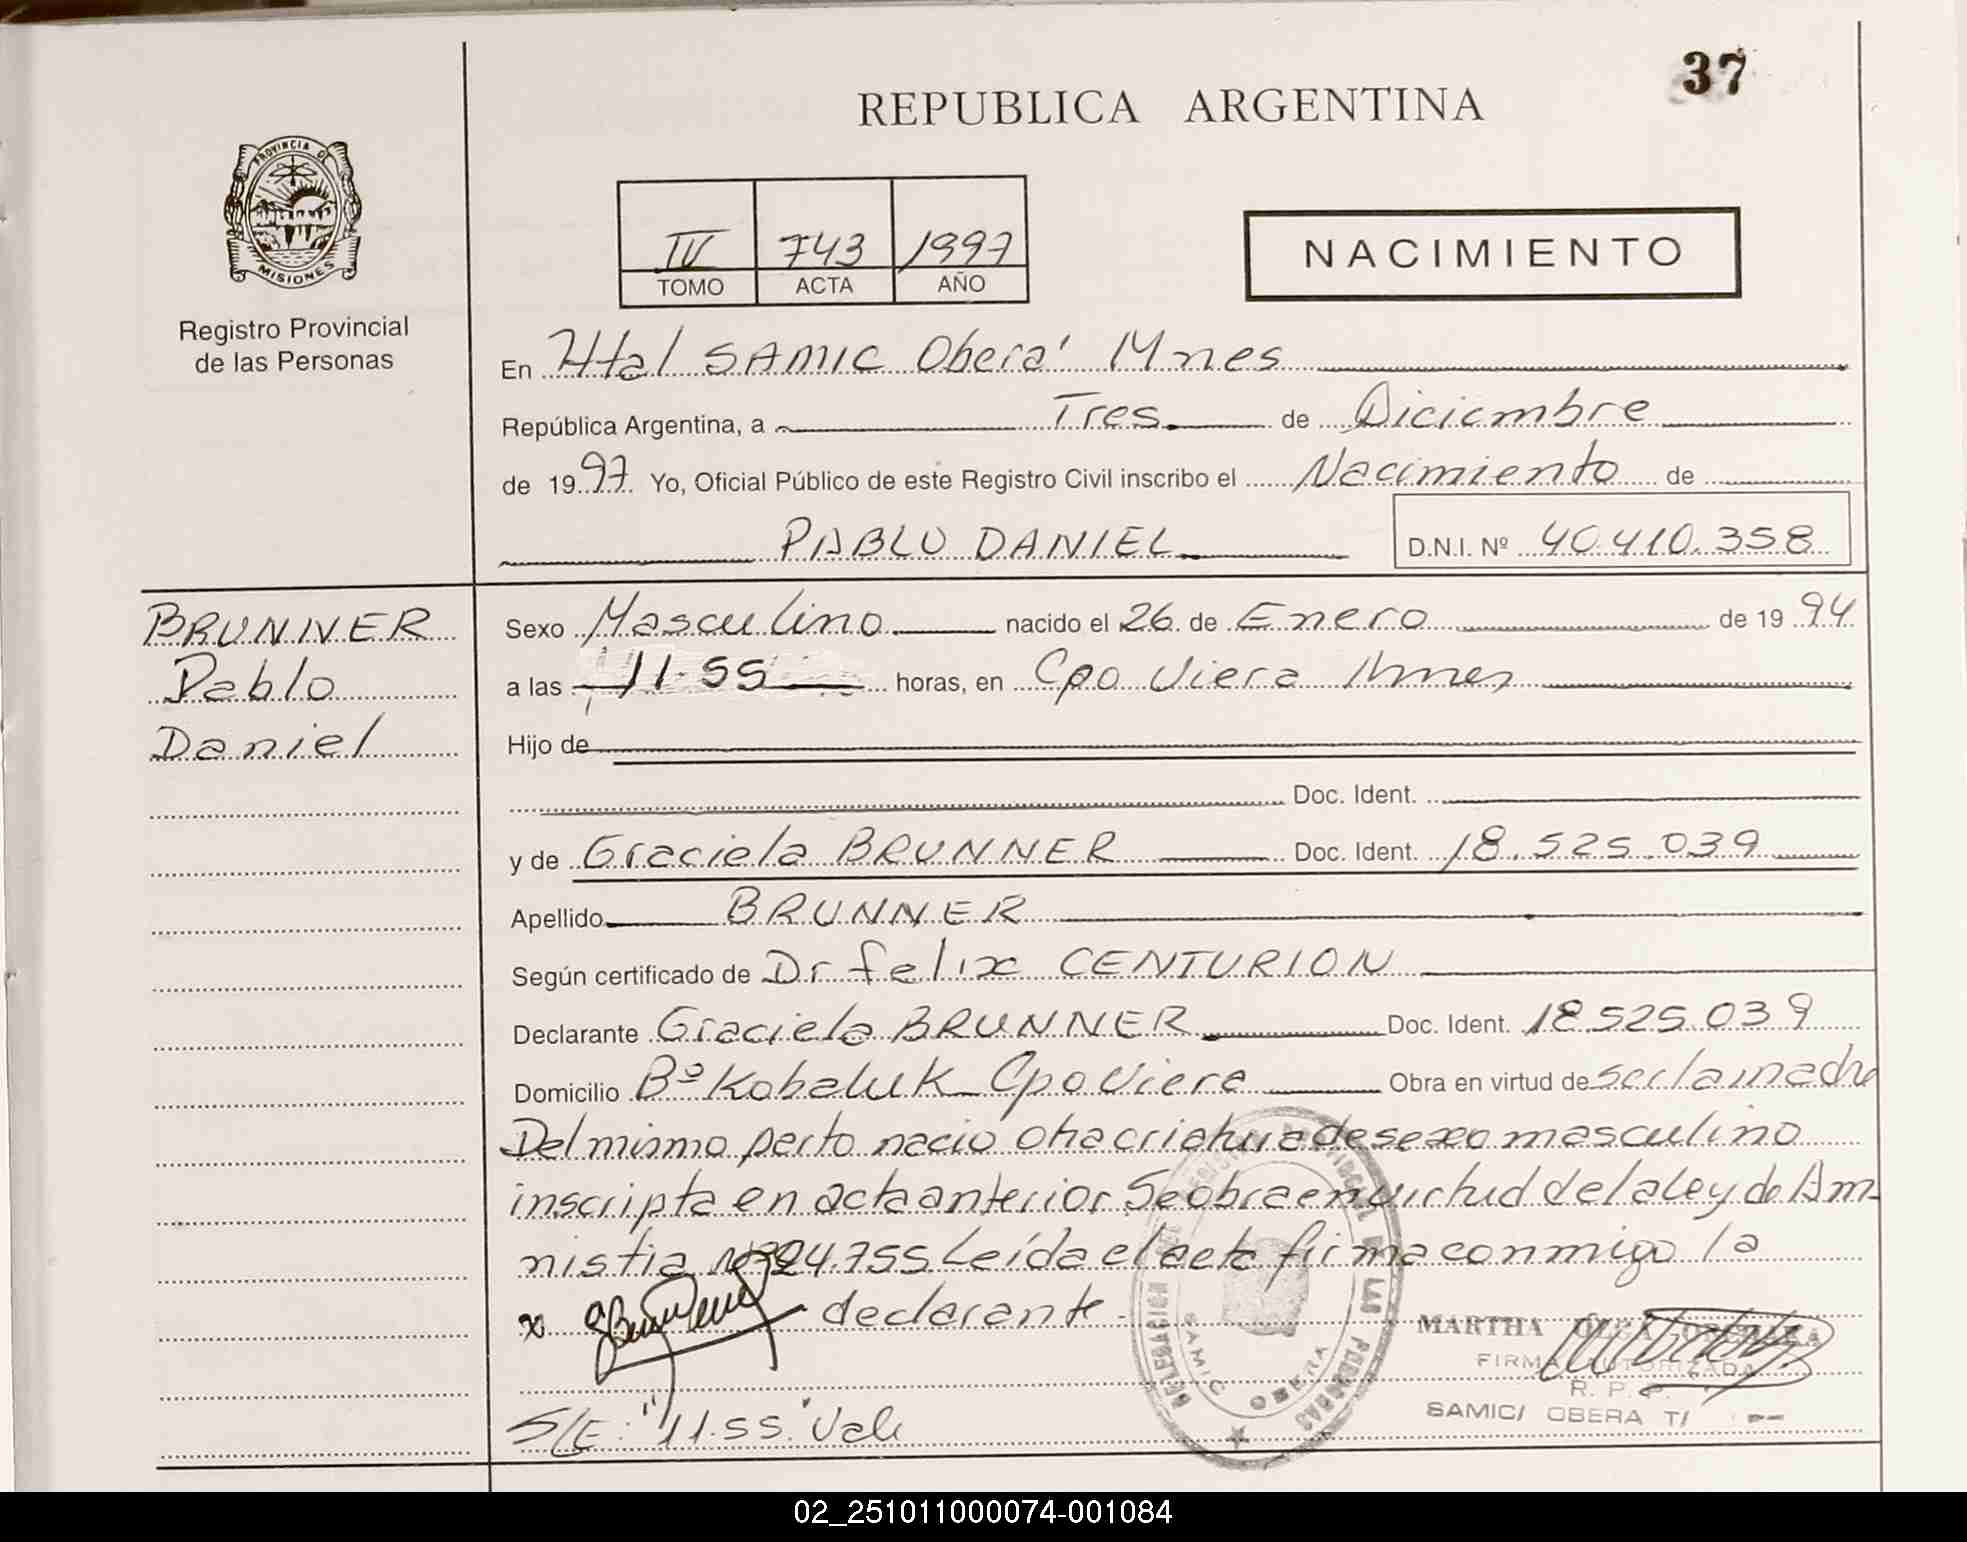 37
REPUBLICA ARGENTINA
PROVINCIA DE
MISIONES
Registro Provincial
de las Personas
IV 743 1997
TOMO ACTA AÑO
NACIMIENTO
En Htal SAMIC Oberá Mnes
República Argentina, a Tres de Diciembre
de 1997 Yo, Oficial Público de este Registro Civil inscribo el Nacimiento de
PABLO DANIEL D.N.I. Nº 40.410.358
BRUNNER
Pablo
Daniel
Sexo Masculino nacido el 26 de Enero de 1994
a las 11.55 horas, en Cpo Viera Mnes
Hijo de
Doc. Ident.
y de Graciela BRUNNER Doc. Ident. 18.525.039
Apellido BRUNNER
Según certificado de Dr Felix CENTURION
Declarante Graciela BRUNNER Doc. Ident. 18.525.039
Domicilio Bº Kobaluk Cpo Viera Obra en virtud de ser la madre
Del mismo parto nacio otra criatura de sexo masculino
inscripta en acta anterior. Se obra en virtud de la ley de Am-
nistia Nº 24.755 Leída el acta firma conmigo la
x declarante.
DELEGACION DEL REGISTRO PROVINCIAL DE LAS PERSONAS
SAMIC OBERA
MARTHA OLGA
FIRMA AUTORIZADA
R. P. P.
SAMIC/ OBERA T/
S/E: "11.55" Vale
02_251011000074-001084